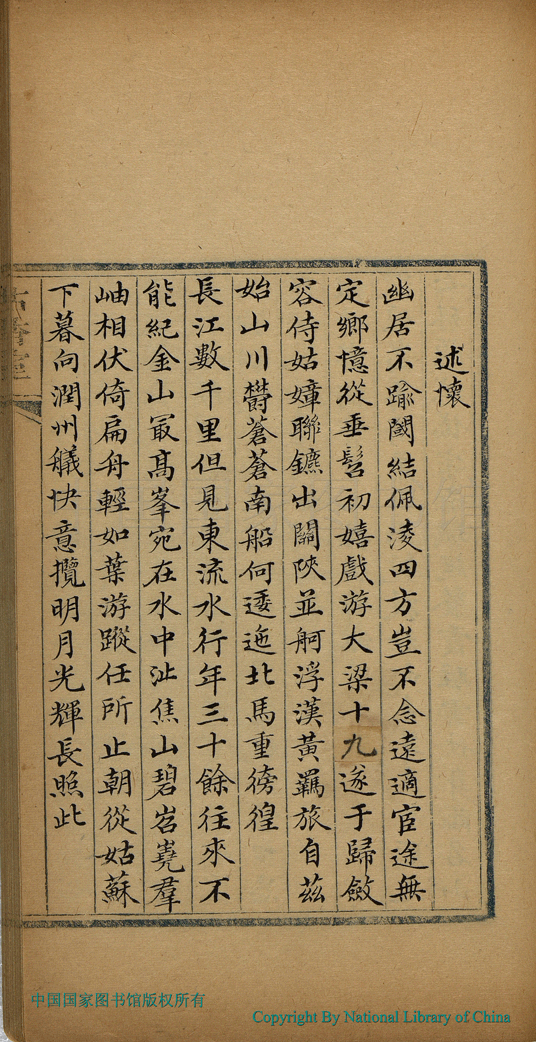 述懷
幽居不踰閾結佩淩四方豈不念遠適宦途無
定鄉憶從垂髫初嬉戲游大梁十九遂于歸斂
容侍姑嫜聯鑣出關陝並舸浮漢黃羈旅自茲
始山川鬱蒼蒼南船何逶迤北馬重徬徨
長江數千里但見東流水行年三十餘往來不
能紀金山冣高峯宛在水中沚焦山碧岧嶤羣
岫相伏倚扁舟輕如葉游蹤任所止朝從姑蘇
下暮向潤州艤快意攬明月光輝長照此
中国国家图书馆版权所有
Copyright By National Library of China